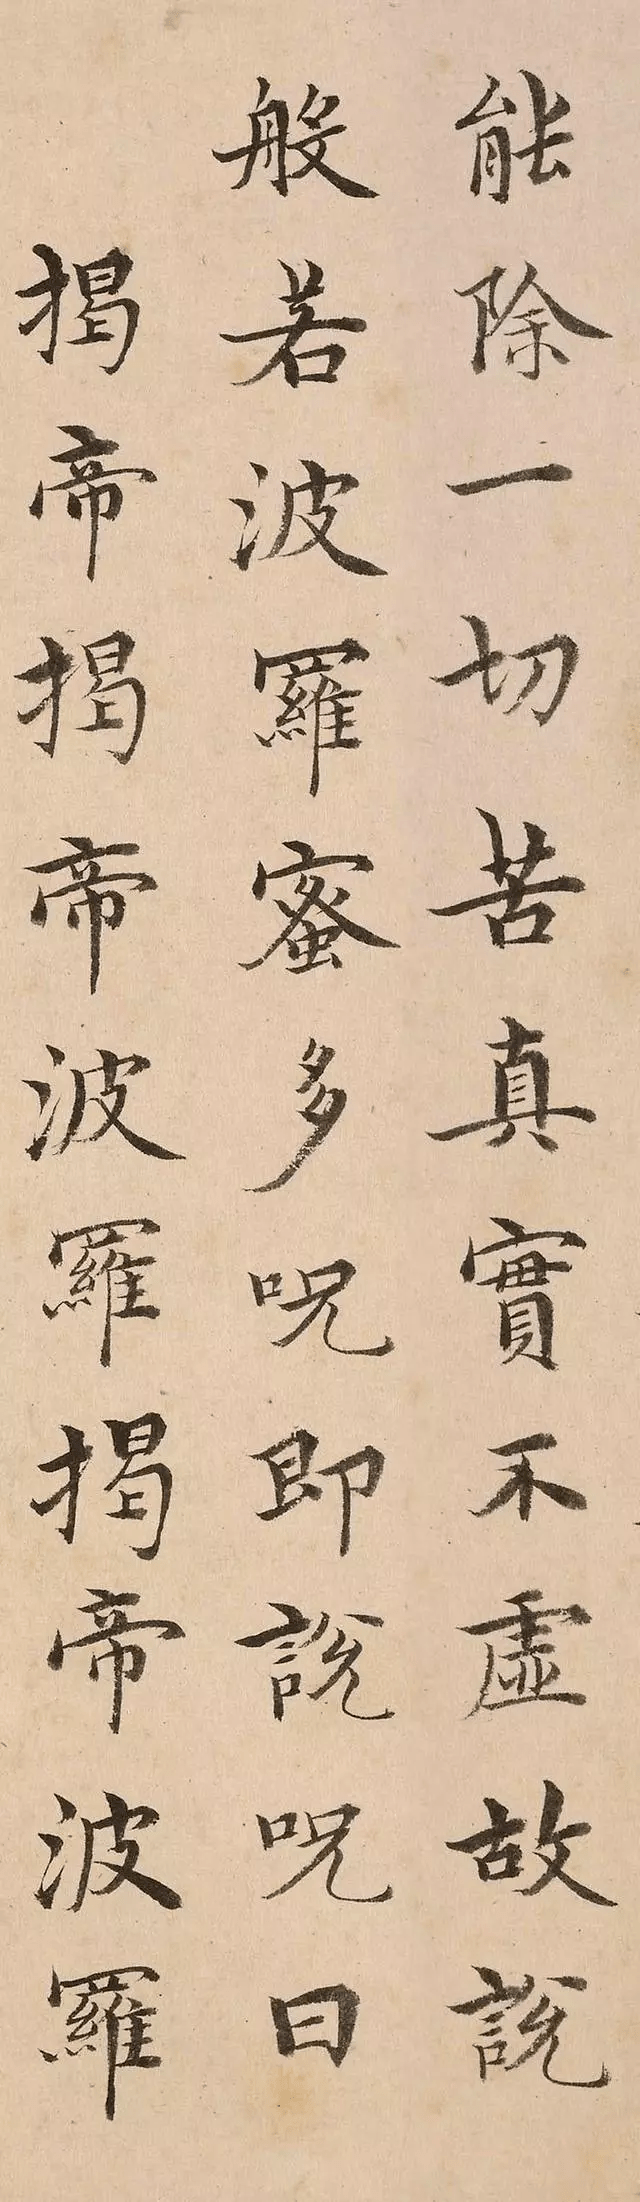 能除一切苦真實不虛故說
般若波羅蜜多呪即說呪曰
揭帝揭帝波羅揭帝波羅